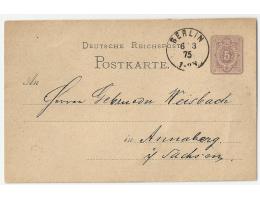 DEUTSCHE REICHSPOST
POSTKARTE.
BERLIN
6 3
75
5
An
Herrn Gebrueder Weisbach
in Annaberg
i/ Sachsen